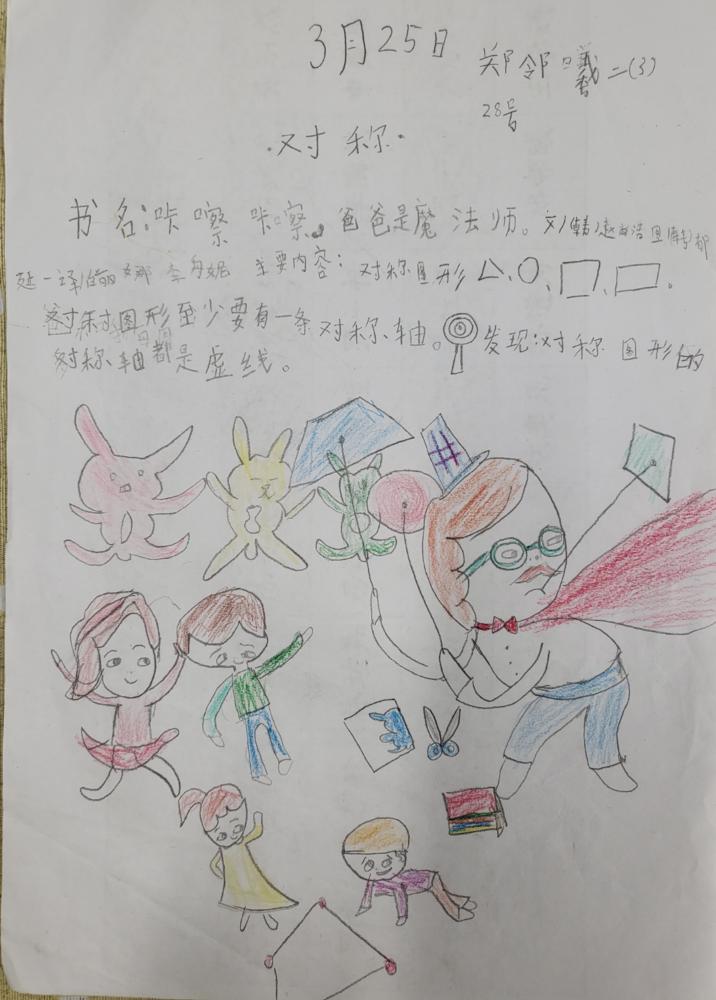 3月25日
郑邻曦 二(3)
28号
·对称·
书名：咔嚓 咔嚓。爸爸是魔法师。文/(韩)
主要内容：对称图形
对称图形至少要有一条对称、轴。发现：对称图形的
对称、轴都是虚线。
#